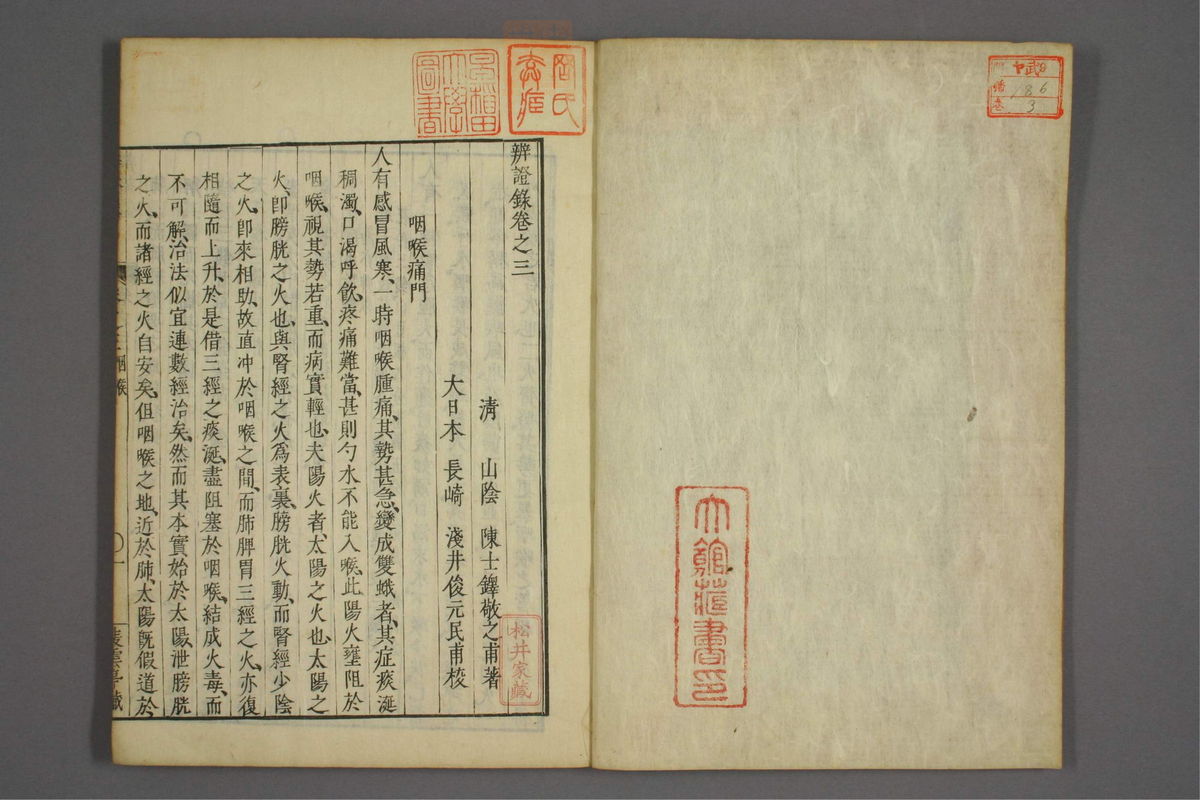 辨證錄卷之三
清 山陰 陳士鐸敬之甫著
大日本 長崎 淺井俊元民甫校
咽喉痛門
人有感冒風寒、一時咽喉腫痛、其勢甚急、變成雙蛾者、其症痰涎
稠濁、口渴呼飲、疼痛難當、甚則勺水不能入喉、此陽火壅阻於
咽喉、視其勢若重、而病實輕也、夫陽火者、太陽之火也、太陽之
火、卽膀胱之火也、與腎經之火爲表裏、膀胱火動、而腎經少陰
之火、卽來相助、故直冲於咽喉之間、而肺脾胃三經之火、亦復
相隨而上升、於是借三經之痰涎、盡阻塞於咽喉、結成火毒、而
不可解、治法似宜連數經治矣、然而其本實始於太陽、泄膀胱
之火、而諸經之火自安矣、但咽喉之地、近於肺、太陽旣假道於
咽喉
〇一
松井家藏
大學
圖書
氏
書印
武
186
3